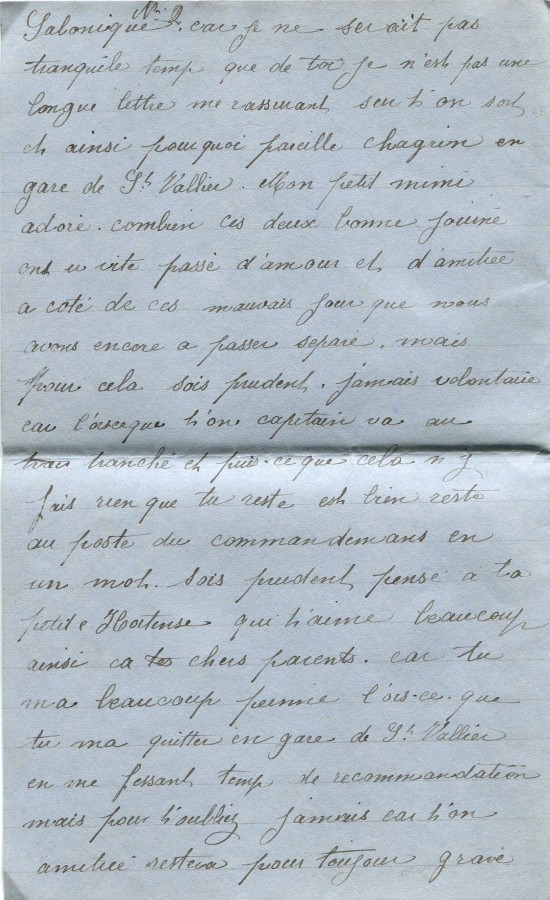 No 2
Salonique. car je ne serait pas
tranquile temp que de toi je n'est pas une
longue lettre me rassurant seu t'on sort
et ainsi pourquoi pareille chagrin en
gare de St Vallier. Mon petit mimi
adoré. combien ces deux bonne journé
ont u vite passé d'amour et d'amitiée
a coté de ces mauvais jour que nous
avons encore a passer separé. mais
pour cela sois prudent. jamais volontaire
car l'orsceque t'on capitain va au
tranché et puis-ce que cela n'y
fais rien que tu reste est bien reste
au poste du commandemans en
un mot. sois prudent, pense a ta
petite Hortense qui t'aime beaucoup
ainsi ca tes chers parents. car tu
ma beaucoup peinné l'ors-ce-que
tu ma quitter en gare de St Vallier
en me fessant temp de recommandation
mais pour t'oubliez jamais car t'on
amitieé restera pour toujour gravé